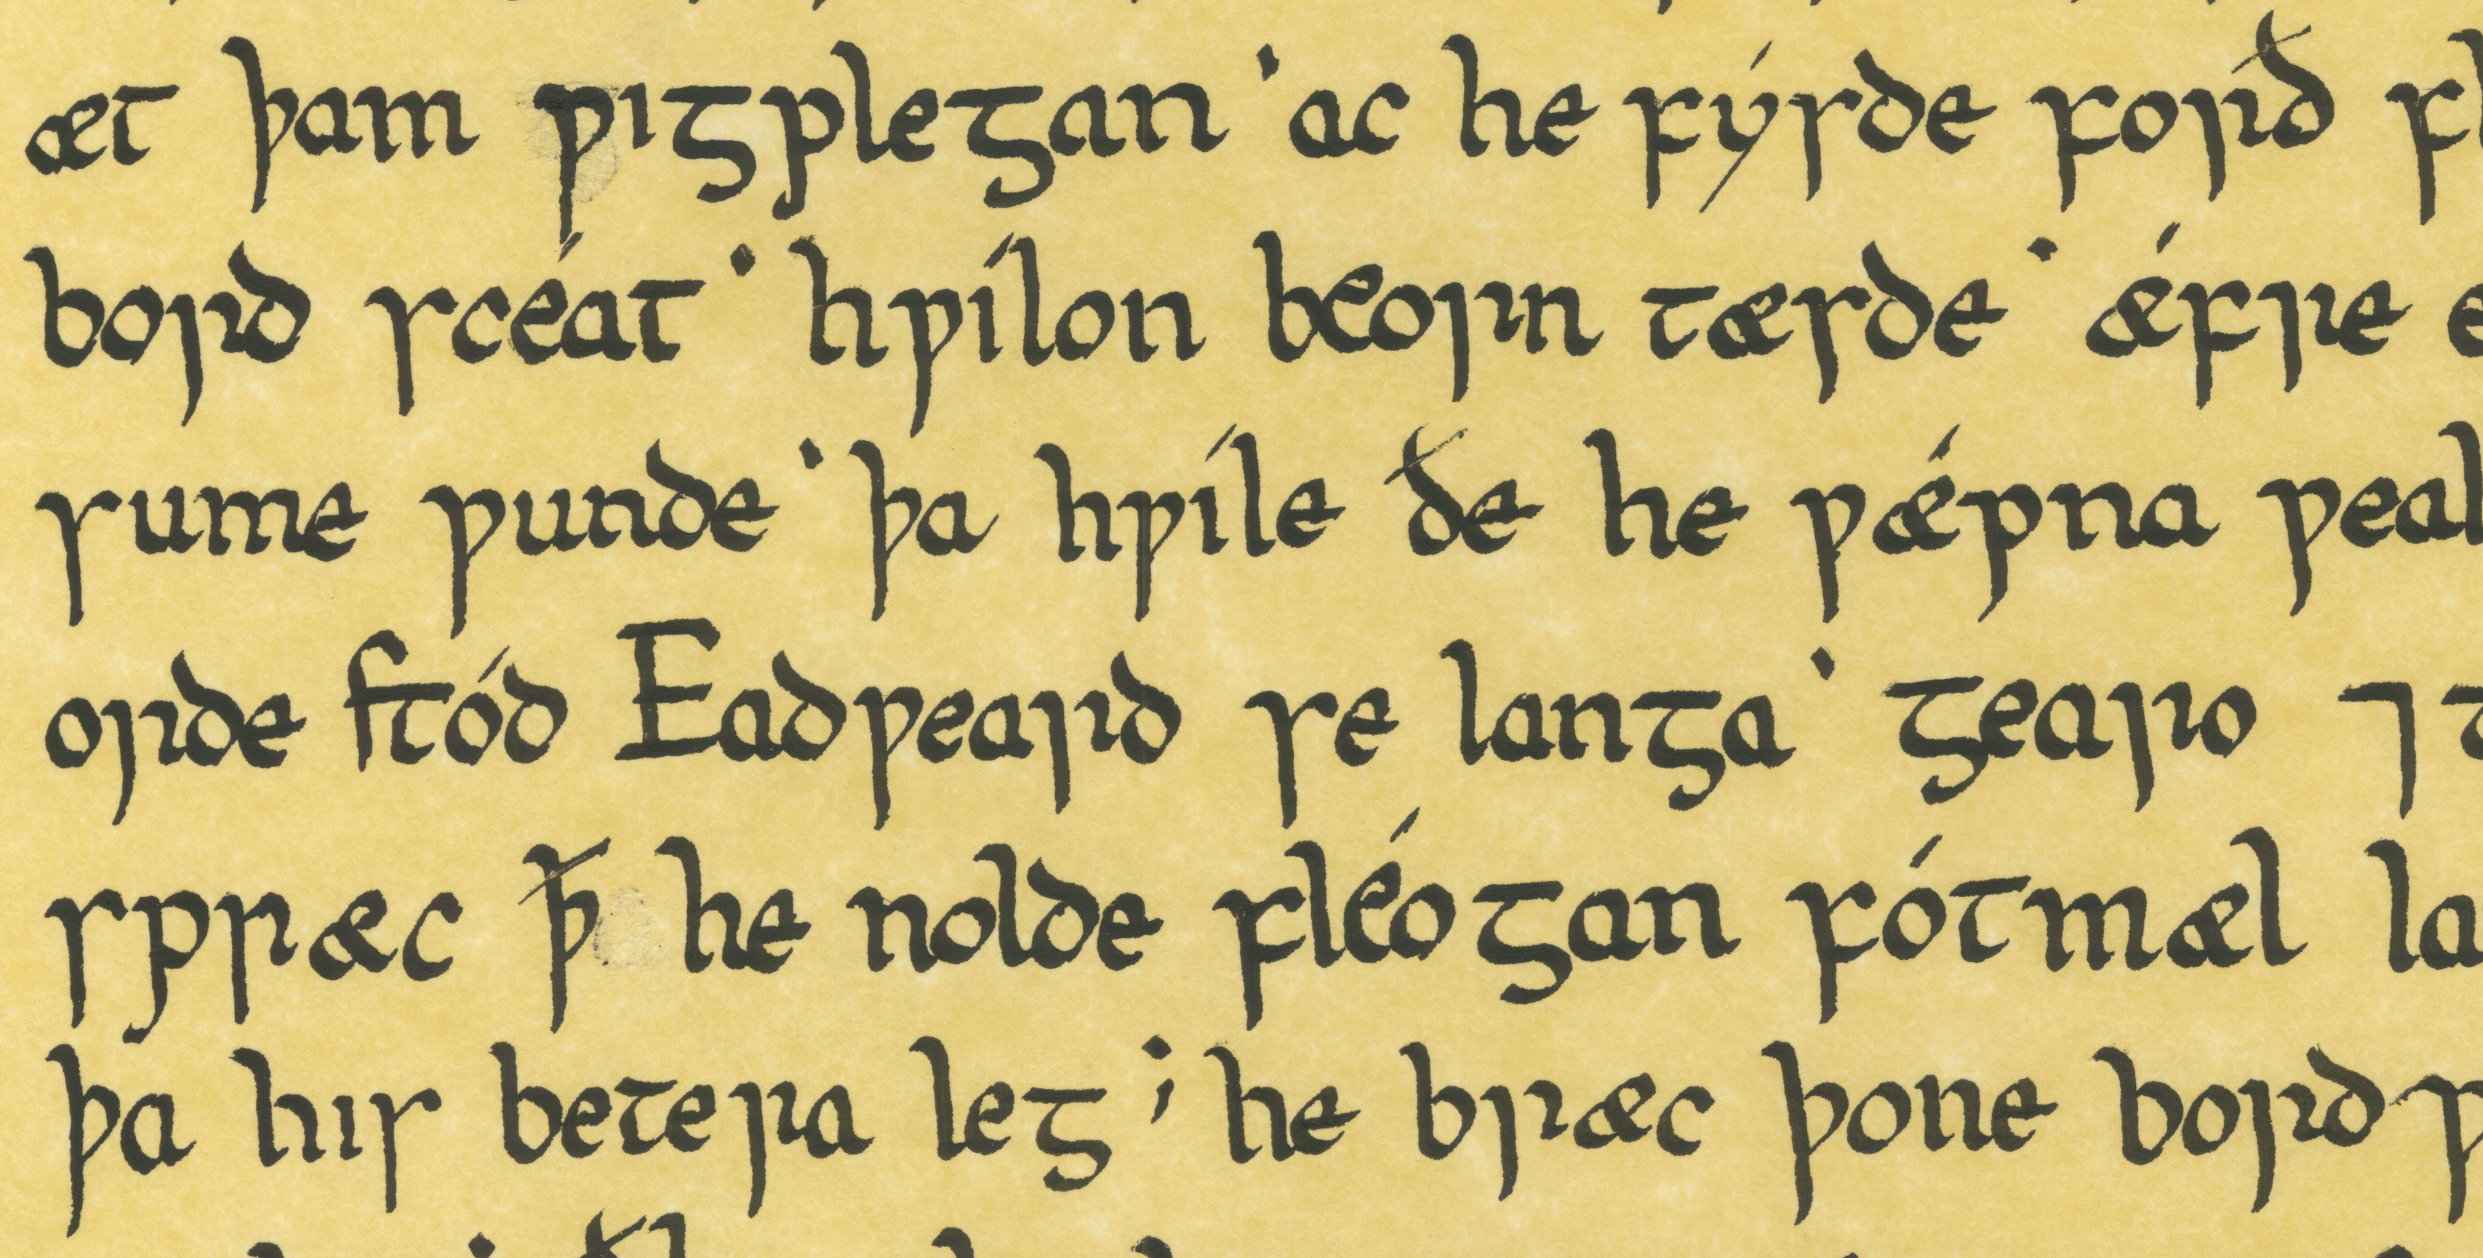 æt þam ƿigplegan · ac he fýsde forð
bord scéat · hƿílon beorn tæsde · ǽfre
sume ƿunde · þa hƿíle ðe he ƿǽpna
orde stód Eadƿeard se langa · gearo ⁊
spræc ꝥ he nolde fléogan fótmæl
þa his betera leg ; he bræc þone bord